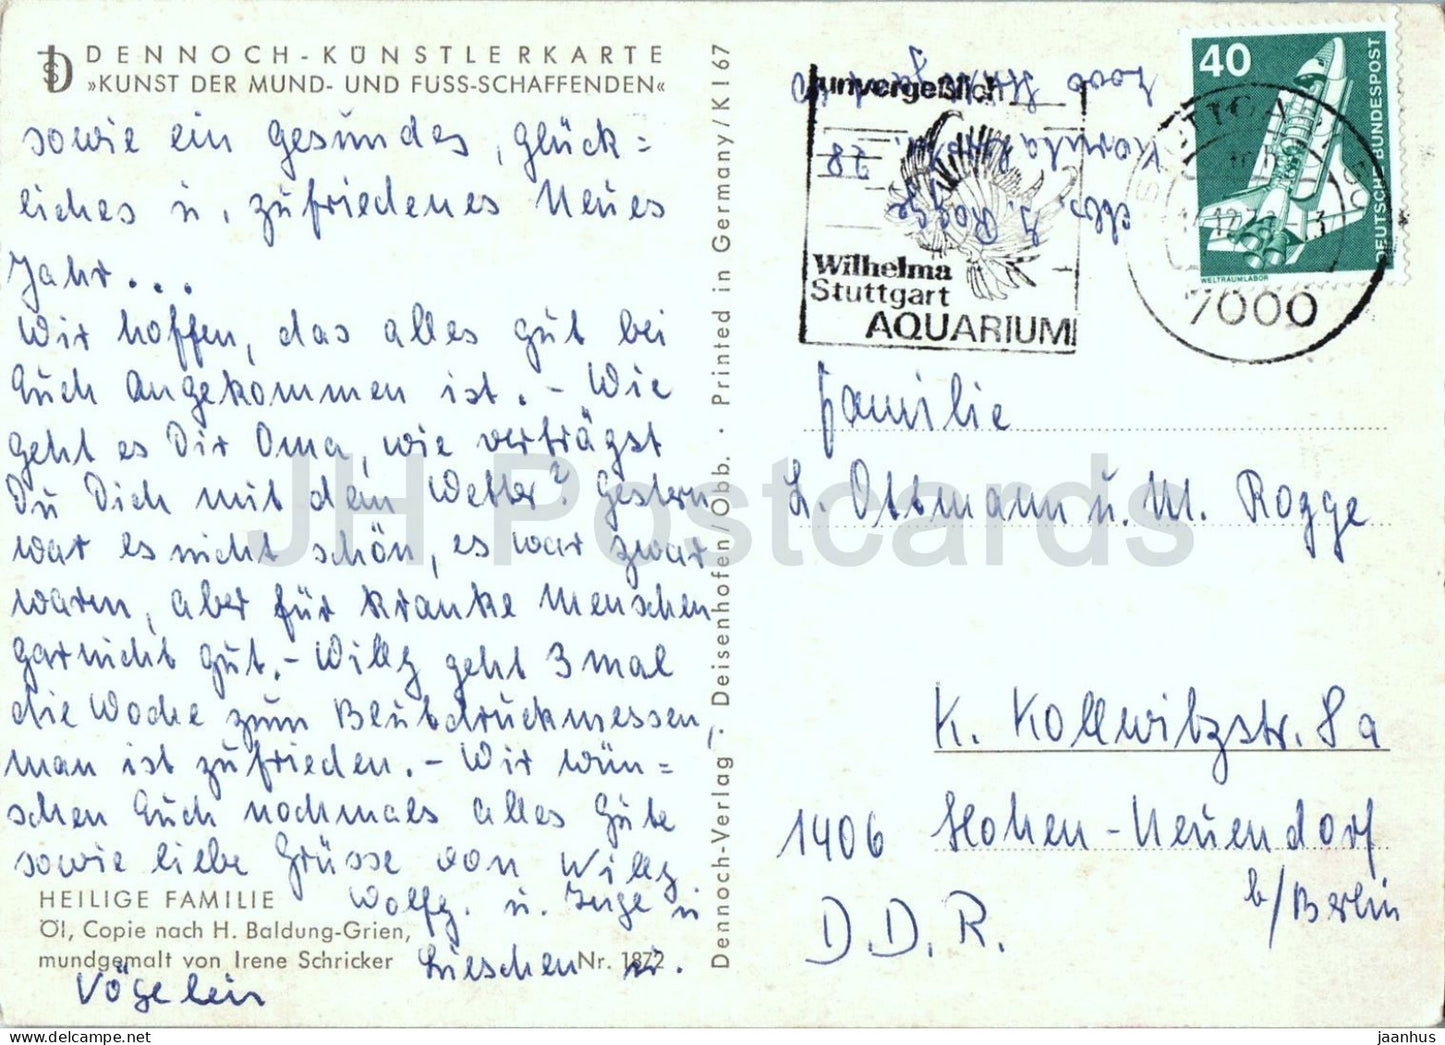 DENNOCH-KÜNSTLERKARTE
»KUNST DER MUND- UND FUSS-SCHAFFENDEN«
sowie ein gesundes, glück=
liches u. zufriedenes Neues
Jahr...
Wir hoffen, das alles gut bei
Euch angekommen ist. - Wie
geht es Dir Oma, wie verträgst
Du Dich mit dem Wetter? Gestern
war es nicht schön, es war zwar
warm, aber für Kranke Menschen
garnicht gut. - Willy geht 3 mal
die Woche zum Blutdruckmessen,
man ist zufrieden. - Wir wün=
schen Euch nochmals alles Gute
sowie liebe Grüsse von Willy
Wolfg. u. Inge u
Lieschen u.
Vögelein
HEILIGE FAMILIE
Öl, Copie nach H. Baldung-Grien,
mundgemalt von Irene Schricker
Nr. 1872
Dennoch-Verlag · Deisenhofen/Obb. · Printed in Germany/K I 67
unvergeßlich
Wilhelma
Stuttgart
AQUARIUM
Abs.
Rogge
40
DEUTSCHE BUNDESPOST
WELTRAUMLABOR
7000
Familie
L. Ottmann u. M. Rogge
K. Kollwitzstr. 8a
1406 Hohen-Neuendorf
b/Berlin
D.D.R.
JH Postcards
jaanhus © HipPostcard.com